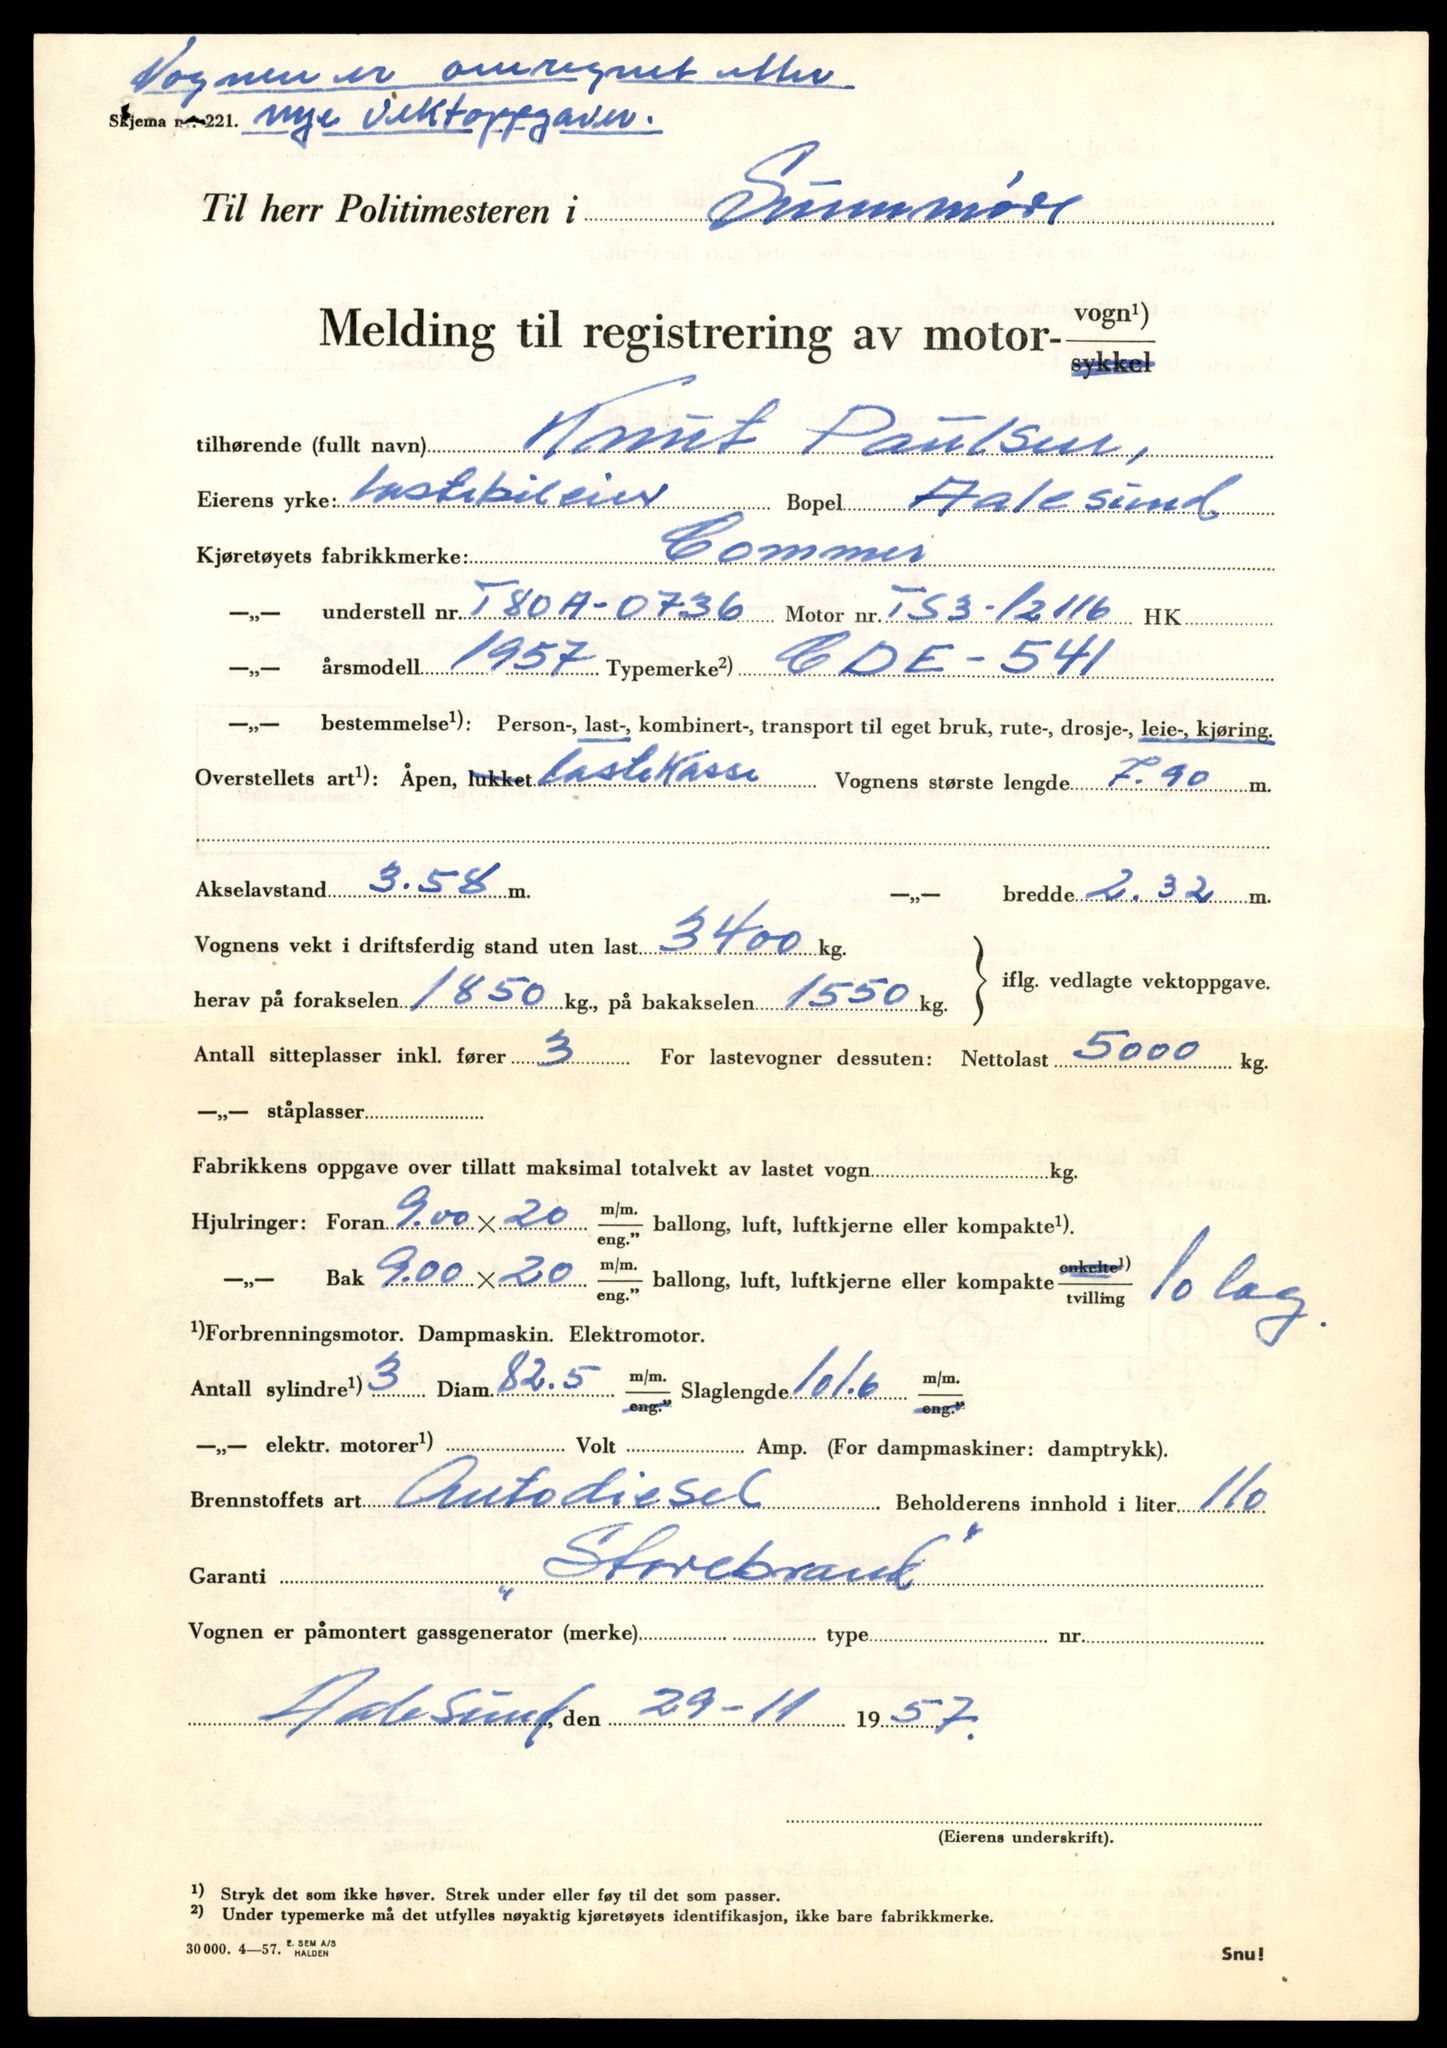 Vognen er omregnet etter
Skjema nr. 221. nye vektoppgaver.
Til herr Politimesteren i Sunnmøre
Melding til registrering av motor- vogn¹)
sykkel
tilhørende (fullt navn) Knut Paulsen,
Eierens yrke: Lastebileier Bopel Aalesund
Kjøretøyets fabrikkmerke: Commer
—„— understell nr. T80A-0736 Motor nr. TS3-12116 HK
—„— årsmodell 1957 Typemerke²) CDE-541
—„— bestemmelse¹): Person-, last-, kombinert-, transport til eget bruk, rute-, drosje-, leie-, kjøring.
Overstellets art¹): Åpen, lukket lastekasse Vognens største lengde 7.90 m.
Akselavstand 3.58 m. —„— bredde 2.32 m.
Vognens vekt i driftsferdig stand uten last 3400 kg.
herav på forakselen 1850 kg., på bakakselen 1550 kg. } iflg. vedlagte vektoppgave.
Antall sitteplasser inkl. fører 3 For lastevogner dessuten: Nettolast 5000 kg.
—„— ståplasser
Fabrikkens oppgave over tillatt maksimal totalvekt av lastet vogn kg.
Hjulringer: Foran 9.00 × 20 m/m. eng." ballong, luft, luftkjerne eller kompakte¹).
—„— Bak 9.00 × 20 m/m. eng." ballong, luft, luftkjerne eller kompakte enkelte¹) tvilling 10 lag.
¹)Forbrenningsmotor. Dampmaskin. Elektromotor.
Antall sylindre¹) 3 Diam. 82.5 m/m. eng." Slaglengde 101.6 m/m. eng."
—„— elektr. motorer¹) Volt Amp. (For dampmaskiner: damptrykk).
Brennstoffets art Autodiesel Beholderens innhold i liter 110
Garanti „Storebrand"
Vognen er påmontert gassgenerator (merke) type nr.
Aalesund, den 29-11 1957.
(Eierens underskrift).
¹) Stryk det som ikke høver. Strek under eller føy til det som passer.
²) Under typemerke må det utfylles nøyaktig kjøretøyets identifikasjon, ikke bare fabrikkmerke.
30 000. 4—57. E. SEM A/S HALDEN Snu!